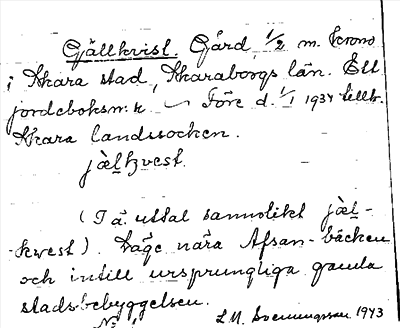 Gällkvist. Gård, 1/2 m. krono
i Skara stad, Skaraborgs län. Ett
jordeboksn:r. Före d. 1/1 1934 tillh.
Skara landssocken.
jä̀l̥kvest.
(I ä. uttal sannolikt jäl-
-kwest). Läge nära Afsan-bäcken
och intill ursprungliga gamla
stadsbebyggelsen.
L.M. Svenungsson 1943